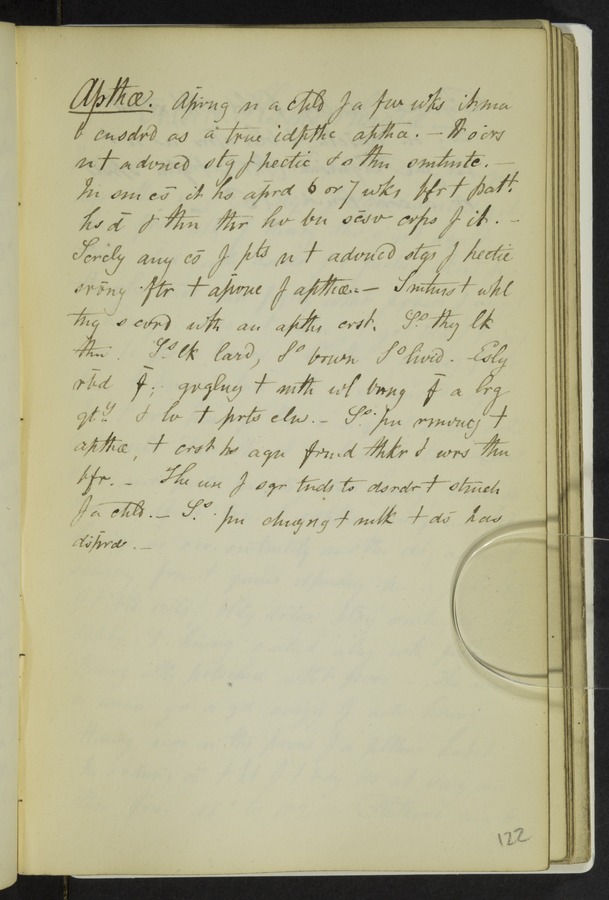 Apthæ. Apring n a chld f a fw wks it ma
b cnsdrd as a true idpthc aptha. — It ocrs
n t advncd stg f hectic & o thn
In sm cs it hs aprd 6 or 7 wks bfr t patt.
hs d & thn thr hv bn scsv crps f it. —
Scrcly any cs f pts n t advncd stgs f hectic
ftr t aprnc f apthæ. — Smtms t whl
tng s cvrd with an apths crst. Ss. they lk
thn. Ss. lk lard, Ss brown Ss livid. — Esly
rbd f; grglng t mth wl brng f a lrg
qty & lv t prts cln. — Ss. pn rmvng t
apthæ, t crst hs agn frmd thkr & wrs thn
bfr. — The use f sgr tnds to dsrdr t stmch
f a chld. — Ss. pn chngng t mlk t ds has
disprd. —
122